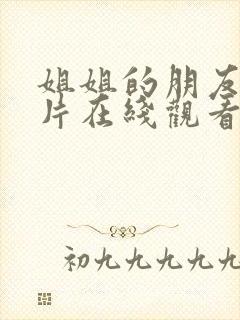 姐姐的朋友
片在綫觀看
初九九九九九